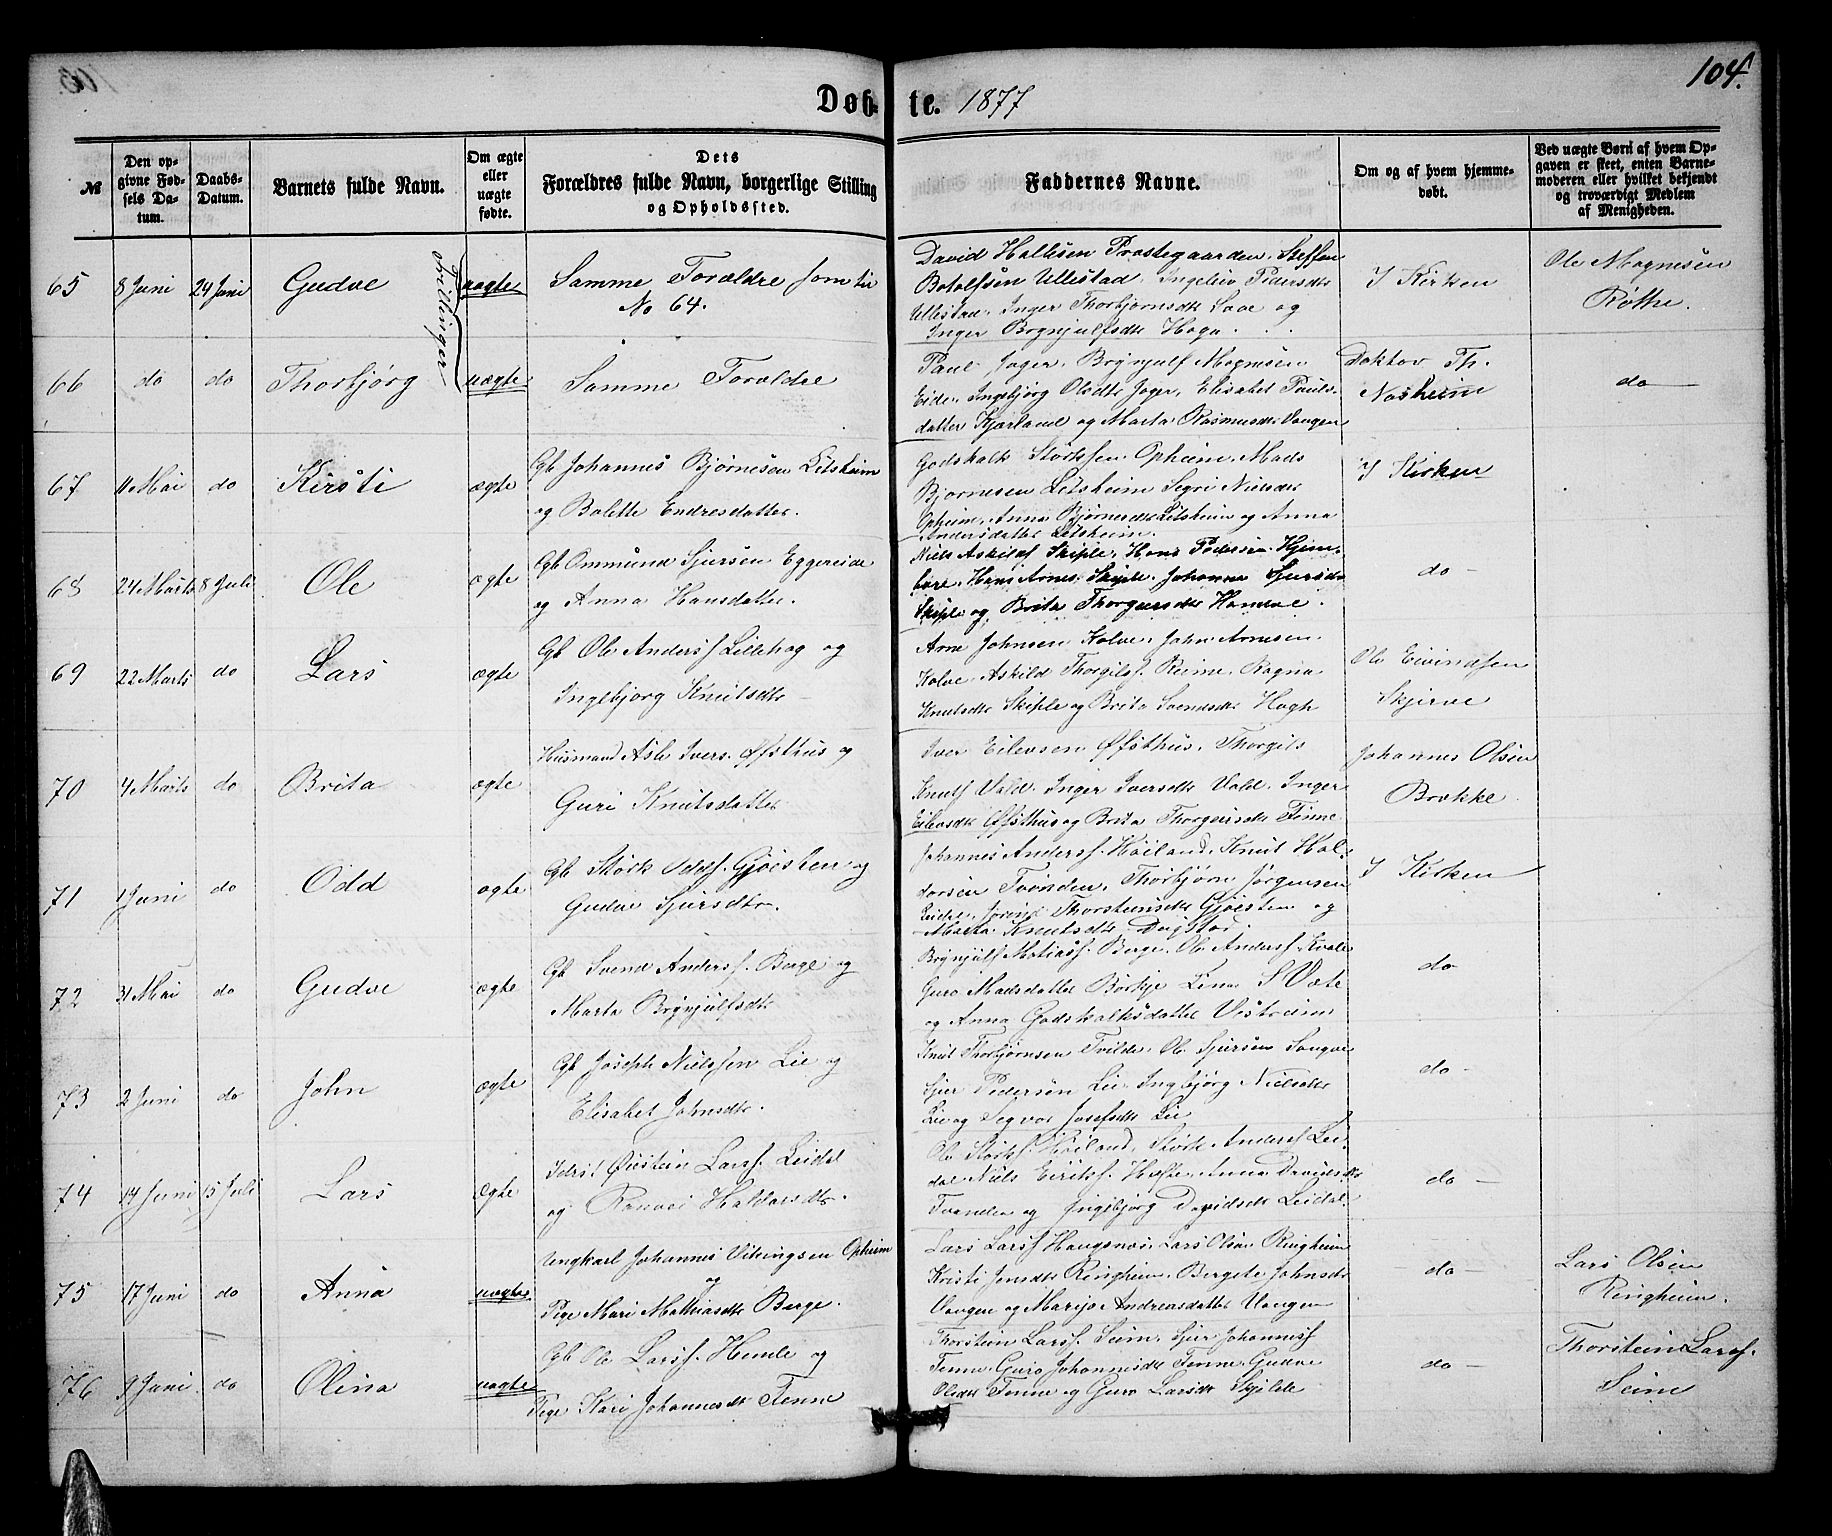 104.
Døb- te. 1877
№
Den op-
givne Fød-
sels Da-
tum.
Daabs-
Datum.
Barnets fulde Navn.
Om ægte
eller
uægte
fødte.
Dets
Forældres fulde Navn, borgerlige Stilling
og Opholdssted.
Faddernes Navne.
Om og af hvem hjemme-
døbt.
Ved uægte Børn af hvem Op-
gaven er skeet, enten Barne-
moderen eller hvilket bekjendt
og troværdigt Medlem
af Menigheden.
Trillinger
65 8 Juni 24 Juni Gudve uægte
Samme Forældre som til
No 64.
David Hallesen Præstegaarden, Steffen
Botolfsen Ullestad, Ingeleiv Pedersdtr
Ullestad, Inger Thorbjørnsdtr Love og
Inger Brynjulfsdtr Haga.
I Kirken
Ole Magnesen
Røthe.
66 do do Thorbjørg uægte
Samme Forældre
Paul Jager, Brynjulf Magnesen
Eide, Ingebjørg Olsdtr Jager, Elisabet Pauls-
datter Kjærland og Marta Rasmusdtr Vangen
Doktor Th.
Nasheim
do
67 11 Mai do Kirsti ægte
Gb Johannes Bjørnesen Litsheim
og Bolette Endresdatter.
Godskalk Størksen Opheim, Mads
Bjørnesen Litsheim Segri Nielsdtr
Opheim, Anna Bjørnesdtr Litsheim og Anna
Andersdatter Litsheim.
I Kirken
68 24 Marts 8 Juli Ole ægte
Gb Ommund Sjursen Eggereide
og Anna Hansdatter.
Niels Askildsf Skiple, Hans Pedersen Hjem-
bore, Hans Arnes. Skiple, Johanna Sjursdtr
Skiple og Brita Thorgersdtr Hamre.
do
69 22 Marts do Lars ægte
Gb Ole Andersf Lillehag og
Ingebjørg Knutsdtr
Arne Johnsen Kolve, John Arnesen
Kolve, Askild Thorgilsf. Reime, Ragna
Knutsdtr Skiple og Brita Svendsdtr Hagh
Ole Eivindsen
Skjerve
70 4 Marts do Brita ægte
Husmand Asle Ivers. Øfsthus og
Guri Knutsdatter
Iver Eilevsen Øfsthus, Thorgils
Knutsf Vald, Inger Iversdtr Vald, Inger
Eilevsdtr Øfsthus og Brita Thorgersdtr Finne
Johannes Olsen
Brekke
71 1 Juni do Odd ægte
Gb Størk Oddsf. Gjøesten og
Gudve Sjursdtr.
Johannes Andersf. Høiland, Knut Hal-
dorsen Tvinden, Thorbjørn Jørgensen
Leidve, Jorind Thorsteinsdtr Gjøesten og
Marta Knutsdtr
I Kirken
72 31 Mai do Gudve ægte
Gb Svend Andersf. Berge og
Marta Brynjulfsdtr
Brynjulf Matiasf. Berge, Ole Andersf. Kvale
Guro Madsdatter Børkje Lina S Væte
og Anna Godskalksdatter Vestreim
do
73 2 Juni do John ægte
Gb Joseph Nielssen Lie og
Elisabet Johnsdtr.
Knut Thorbjørnsen Tvilde, Ole Sjursen Sonve
Sjur Pedersen Lie, Ingebjørg Nielsdtr
Lie og Segvor Josefsdtr Lie
do
74 14 Juni 15 Juli Lars ægte
Idrst Øistein Larsf. Leidal
og Ranvei Haldorsdtr.
Ole Størksf. Høiland, Størk Andersf Lei-
dal Niels Eiriksf. Hæfte, Anna Davidsdtr
Tvinden og Ingebjørg Davidsdtr Leidal.
do
75 17 Juni do Anna uægte
Ungkarl Johannes Vikingsen Opheim
og
Pige Mari Mathiasdtr Berge.
Lars Larsf Haugsnæs, Lars Olsen Ringheim
Kristi Jensdtr Ringheim, Bergete Johnsdtr
Vangen og Marijo Andreasdatter Vangen
do
Lars Olsen
Ringheim.
76 9 Juni do Olina uægte
Gb Ole Larsf. Hemle og
Pige Kari Johannesdtr Fenne
Thorstein Larsf. Seim, Sjur Johannesf
Fenne, Guro Johannesdtr Fenne, Gudve
Olsdtr Fenne og Guro Larsdtr Skjelde
do
Thorstein Larsf.
Seim